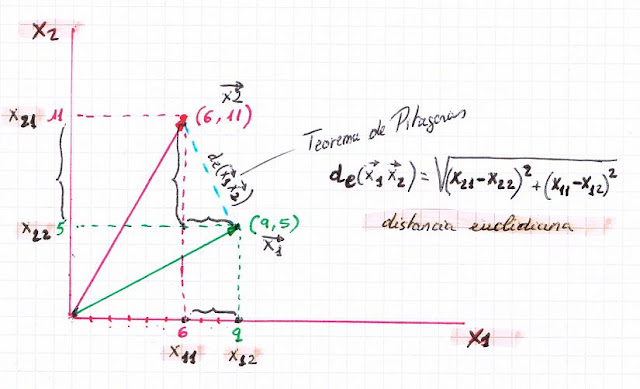 X2
x⃗2
x21 11
(6,11)
Teorema de Pitagoras
de(x⃗1 x⃗2)
de(x⃗1 x⃗2) = √(x21-x22)²+(x11-x12)²
distancia euclidiana
x22 5
(9,5)
x⃗1
6
9
x11
x12
X1